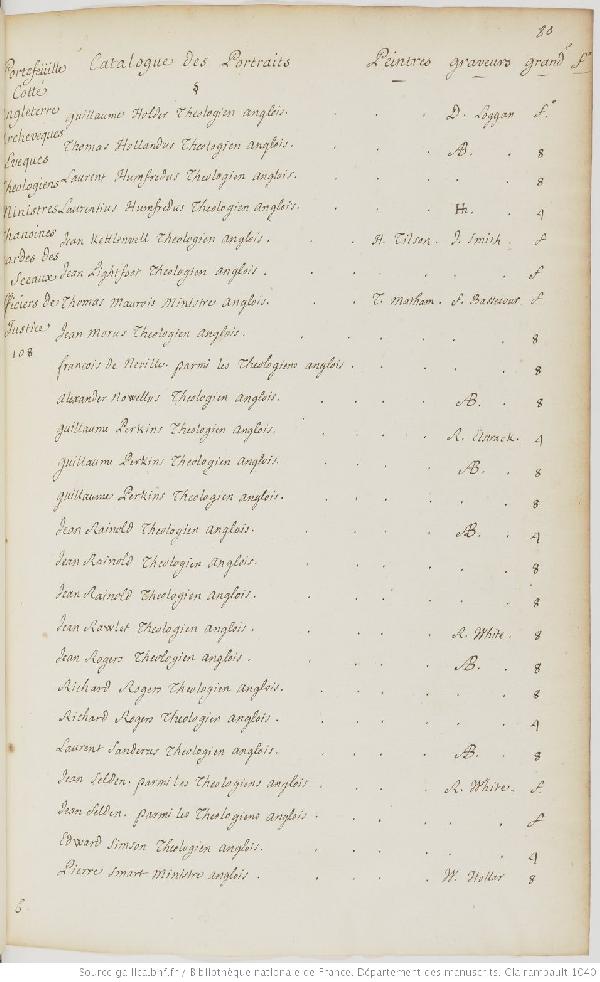 80
Catalogue des Portraits Peintres graveurs grand.r f.o
§
Portefeüille
Cotte
Angleterre
Archeveques
Eveques
Theologiens
Ministres
Chanoines
Gardes des
Sceaux
Officiers de
Justice
108
guillaume Holder Theologien anglois. D. Loggan f.o
Thomas Hollandus Theologien anglois. AB. 8
Laurent Humfredus Theologien anglois. 8
Laurentius Humfredus Theologien anglois. HH. 4
Jean Kettlewell Theologien anglois. H. Tilson. J. Smith. f
Jean Lightfoot Theologien anglois. f
Thomas Maurois Ministres anglois. T. Matham. f
Jean Morus Theologien anglois. 8
françois de Neville. parmi les Theologiens anglois. 8
Alexander Nowellus Theologien anglois. AB. 8
guillaume Perkins Theologien anglois. R. Elstrack. 4
guillaume Perkins Theologien anglois. AB. 8
guillaume Perkins Theologien anglois. 8
Jean Rainold Theologien Anglois. AB. 4
Jean Rainold Theologien Anglois. 8
Jean Rainold Theologien anglois. 8
Jean Rawlet Theologien anglois. R. White. 8
Jean Rogers Theologien anglois. AB. 8
Richard Rogers Theologien anglois. 8
Richard Rogers Theologien anglois. 4
Laurent Sanderus Theologien anglois. AB. 8
Jean Selden. parmi les Theologiens anglois. R. White. f.
Jean Selden. parmi les Theologiens anglois. f
Edward Simson Theologien anglois. 4
Pierre Smart Ministre anglois. W. Hollar 8
6
Source gallica.bnf.fr / Bibliothèque nationale de France. Département des manuscrits. Clairambault 1040